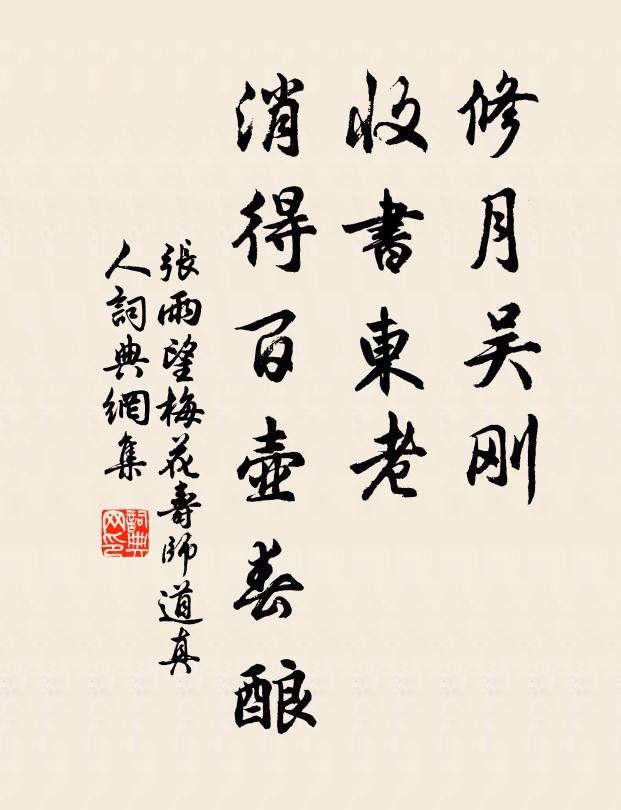 修月吴刚
收書東老
消得百壺春酿
張雨望梅花壽師道真
人詞典網集
詞典
网印